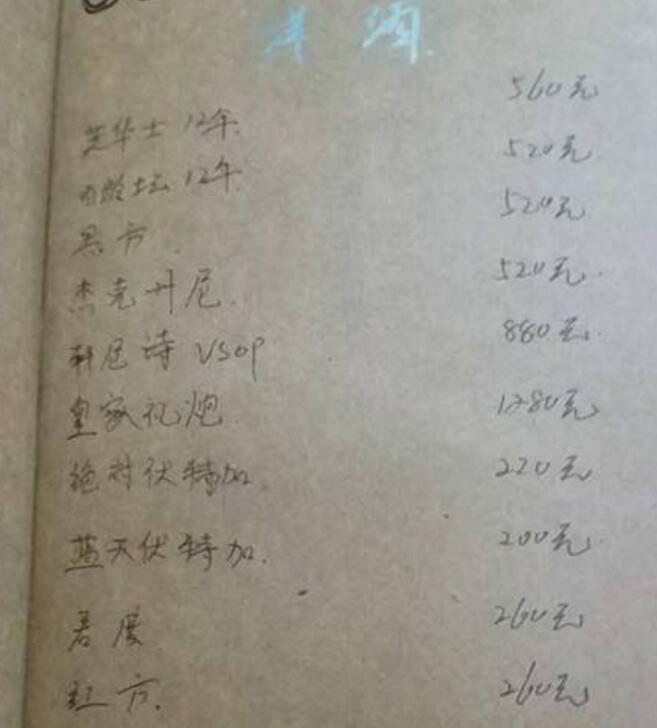 洋酒
芝华士 12年 560元
百龄坛 12年 520元
黑方 520元
杰克丹尼 520元
轩尼诗 VSOP 880元
皇家礼炮 1280元
绝对伏特加 220元
蓝天伏特加 200元
君度 260元
红方 260元